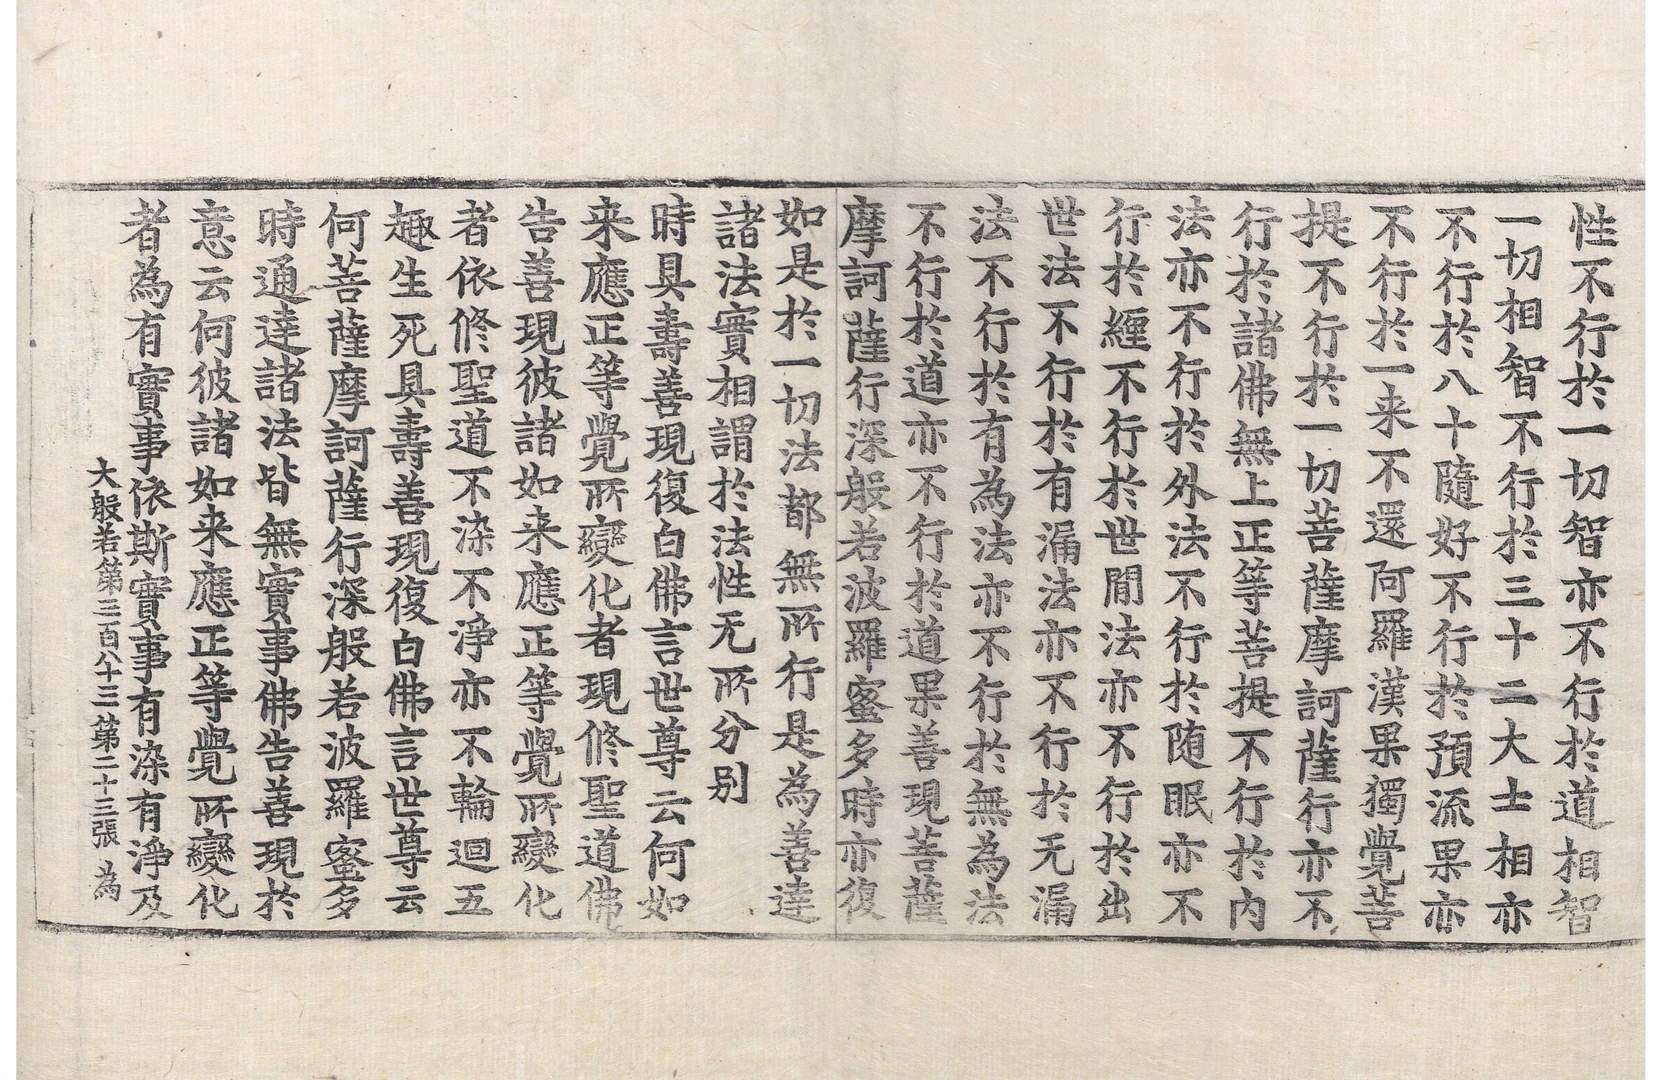 性不行於一切智亦不行於道相智
一切相智不行於三十二大士相亦
不行於八十隨好不行於預流果亦
不行於一来不還阿羅漢果獨覺菩
提不行於一切菩薩摩訶薩行亦不
行於諸佛無上正等菩提不行於內
法亦不行於外法不行於随眠亦不
行於纏不行於世間法亦不行於出
世法不行於有漏法亦不行於无漏
法不行於有為法亦不行於無為法
不行於道亦不行於道果善現菩薩
摩訶薩行深般若波羅蜜多時亦復
如是於一切法都無所行是為善達
諸法實相謂於法性无所分別
時具壽善現復白佛言世尊云何如
来應正等覺所變化者現修聖道佛
告善現彼諸如来應正等覺所變化
者依修聖道不染不淨亦不輪迴五
趣生死具壽善現復白佛言世尊云
何菩薩摩訶薩行深般若波羅蜜多
時通達諸法皆無實事佛告善現於
意云何彼諸如来應正等覺所變化
者為有實事依斯實事有染有淨及
大般若第三百八十三第二十三張 為